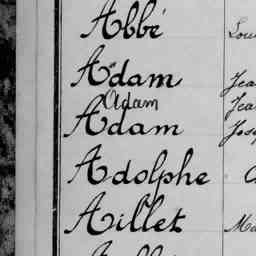 Abbé Lou
Adam Jea
Adam Jea
Adam Jos
Adolphe
Aillet Ma